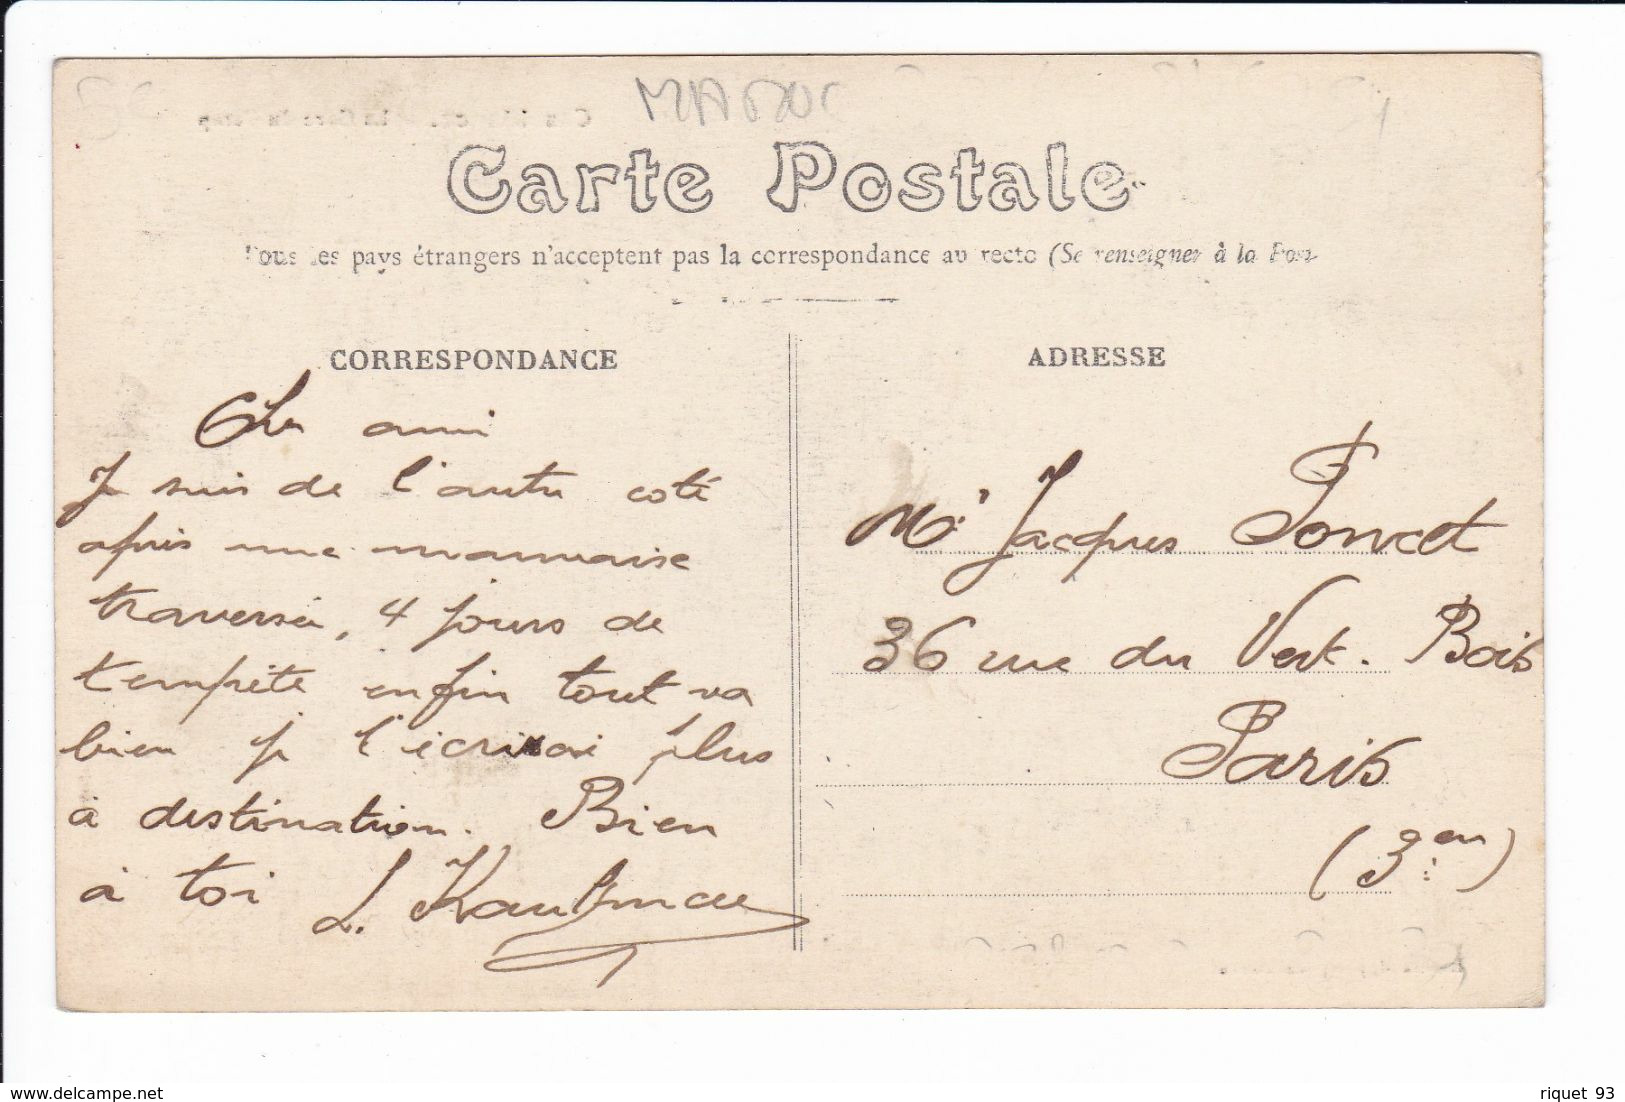 MAROC
Carte Postale
Tous les pays étrangers n'acceptent pas la correspondance au recto (Se renseigner à la Pos
CORRESPONDANCE
Cher ami
Je suis de l'autre coté
apris une mauvaise
traversée, 4 jours de
tempête enfin tout va
bien je t'écrirai plus
à destination. Bien
à toi L. Kaufmann
ADRESSE
Mr Jacques Poncet
36 rue du Vert-Bois
Paris
(3en)
delcampe.net
riquet 93